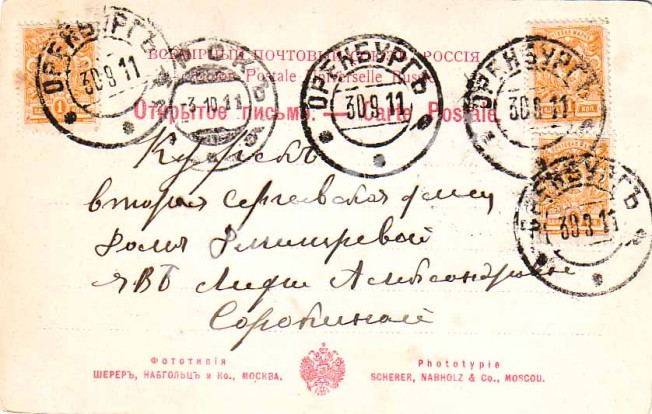 ВСЕМІРНЫЙ ПОЧТОВЫЙ РОССІЯ
Postale Universelle Russie
Открытое письмо. — Carte Postale
ОРЕНБУРГЪ
30 9 11
3.10.11
ОРЕНБУРГЪ
30 9 11
ОРЕНБУРГЪ
30 9 11
ОРЕНБУРГЪ
30 9 11
1
1 КОП.
Курскъ
вторая Сергіевская улиц
домъ Дмитревой
ЯВБ Лидіи Александровне
Сорокиной
Фототипія
ШЕРЕРЪ, НАБГОЛЬЦЪ и Ко., МОСКВА.
Phototypie
SCHERER, NABHOLZ & Co., MOSCOU.